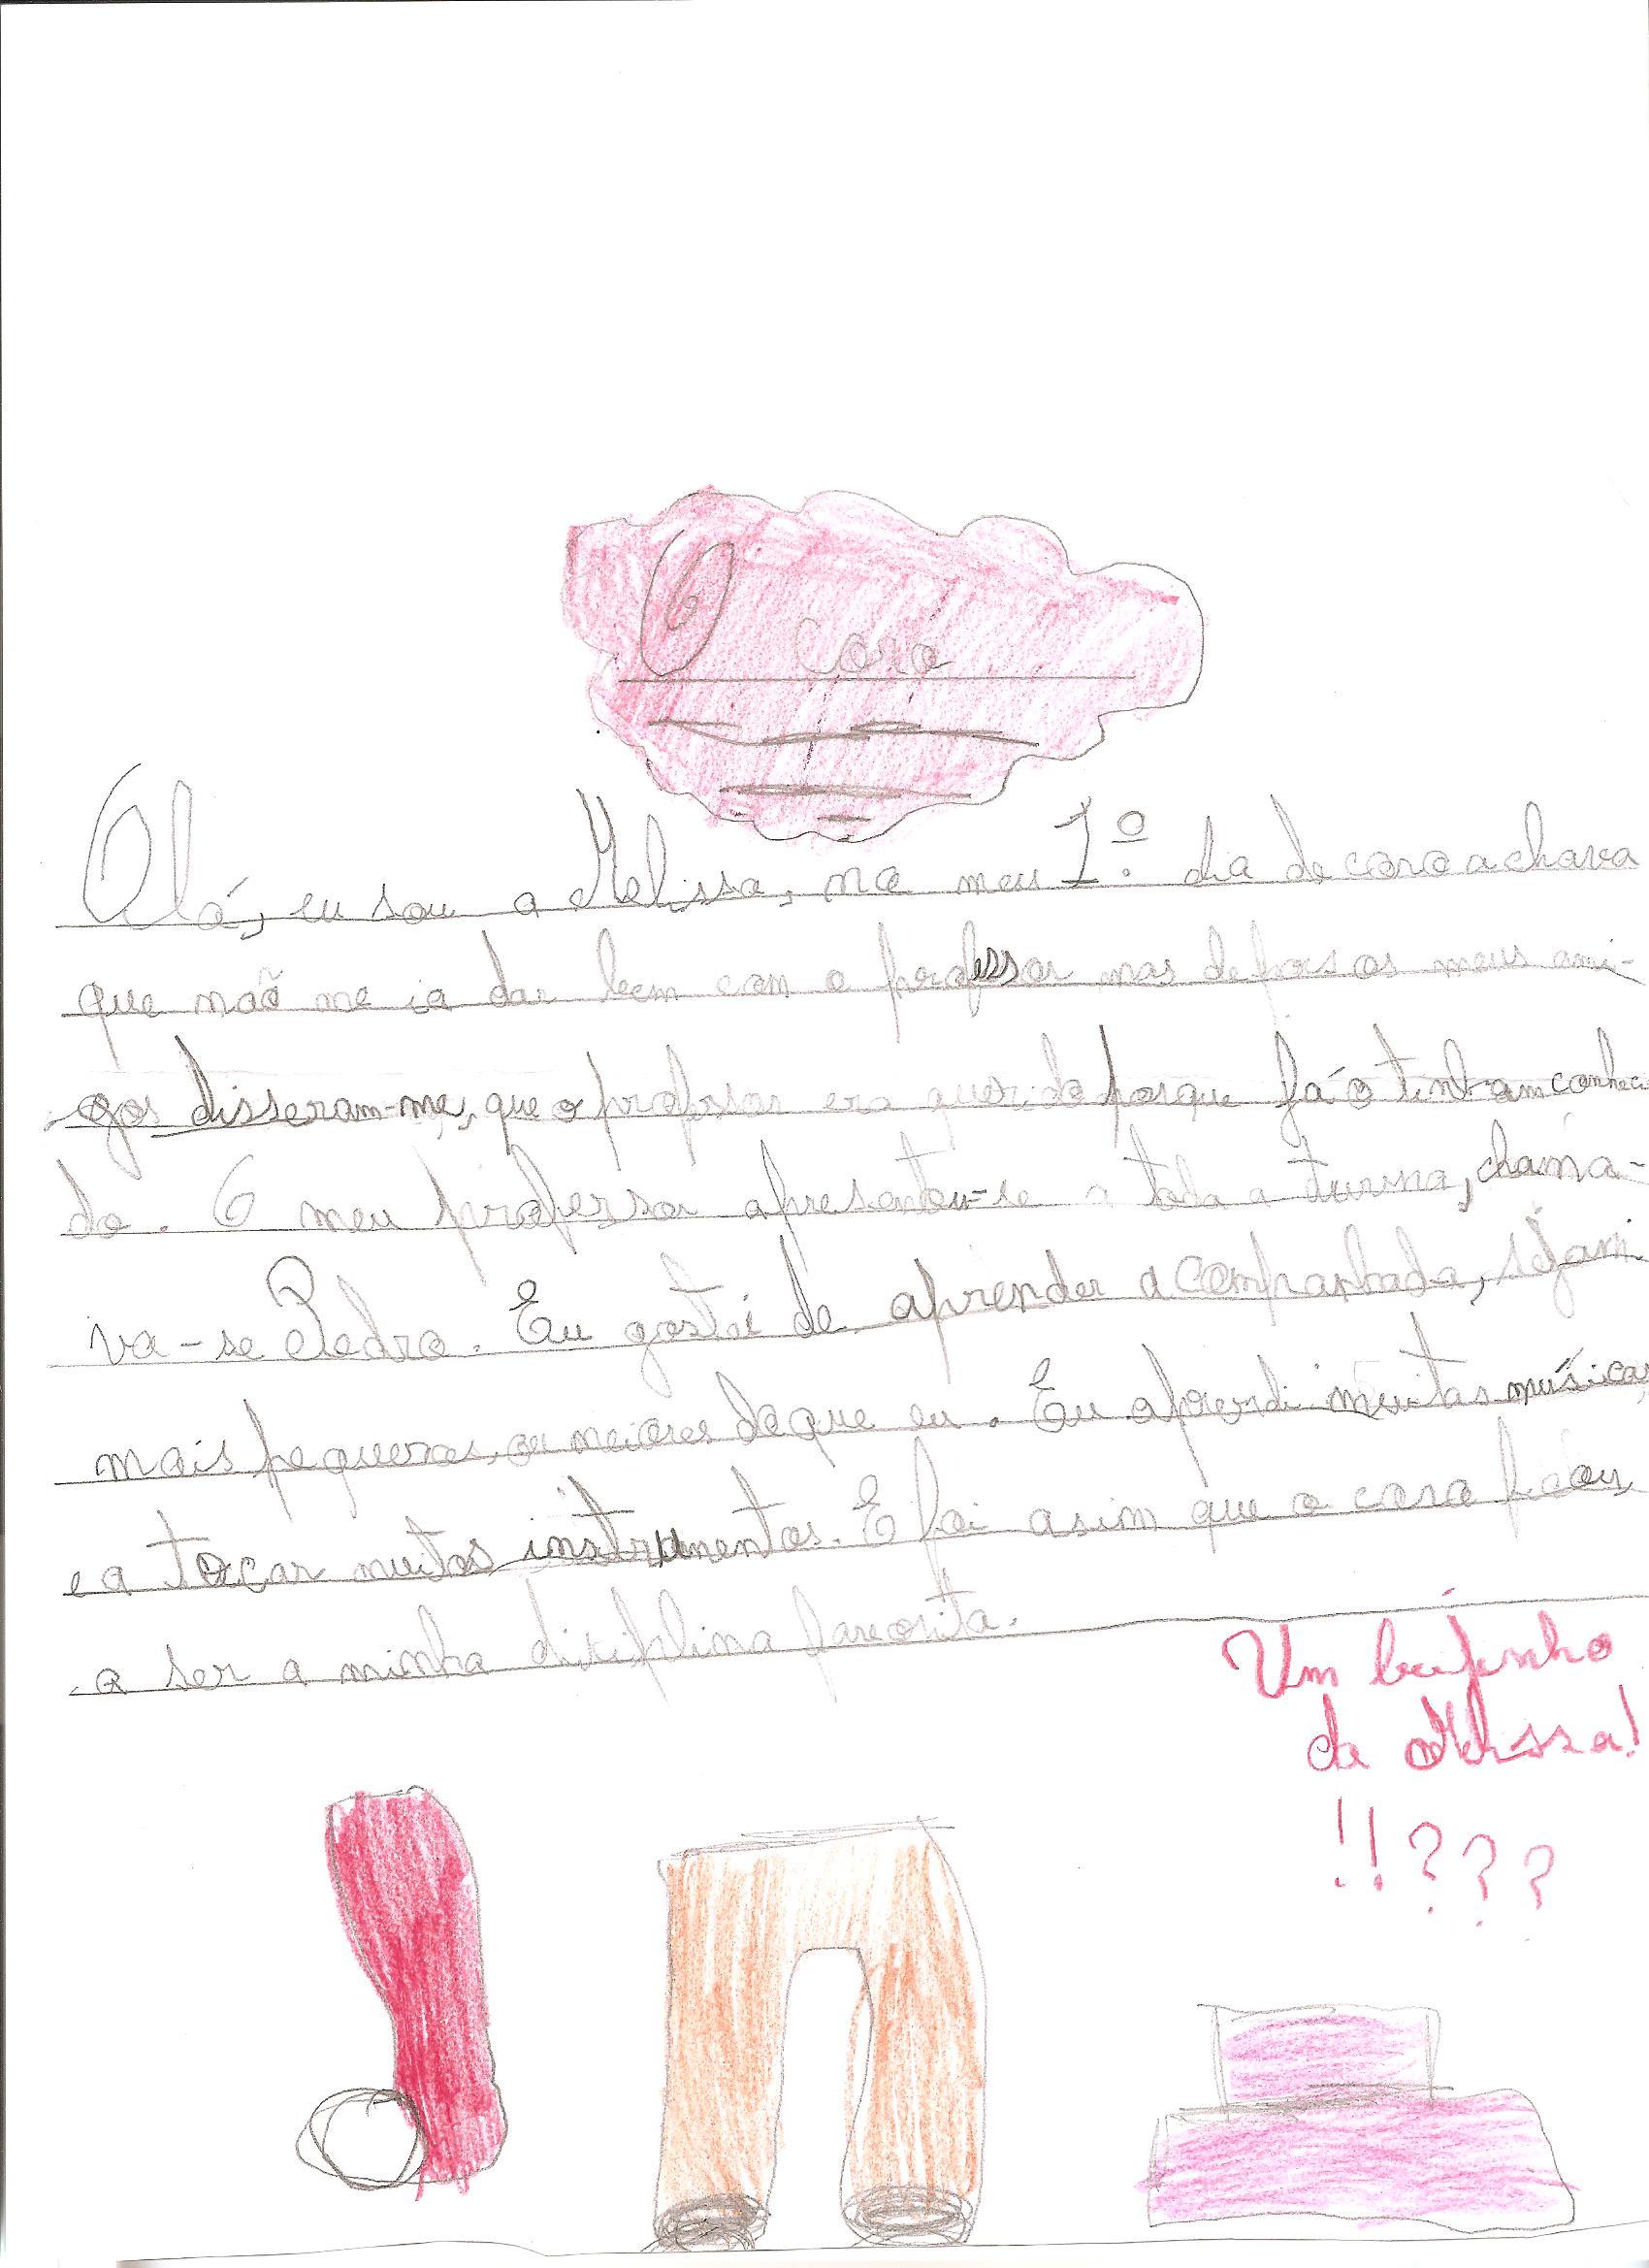 O coro
Olá, eu sou a Melissa, no meu 1.º dia de coro achava
que não me ia dar bem com o professor mas depois os meus ami-
gos disseram-me, que o profssor era querido porque já o tinham conheci
do. O meu professor apresentou-se a toda a turma, chama-
va-se Pedro. Eu gostei de aprender acompanhada, sejam
mais pequenos, ou maiores do que eu. Eu aprendi muitas músicas,
e a tocar muitos instrumentos. E foi asim que o coro ficou
a ser a minha disiplina favorita.
Um beijinho
da Melissa!
!!???